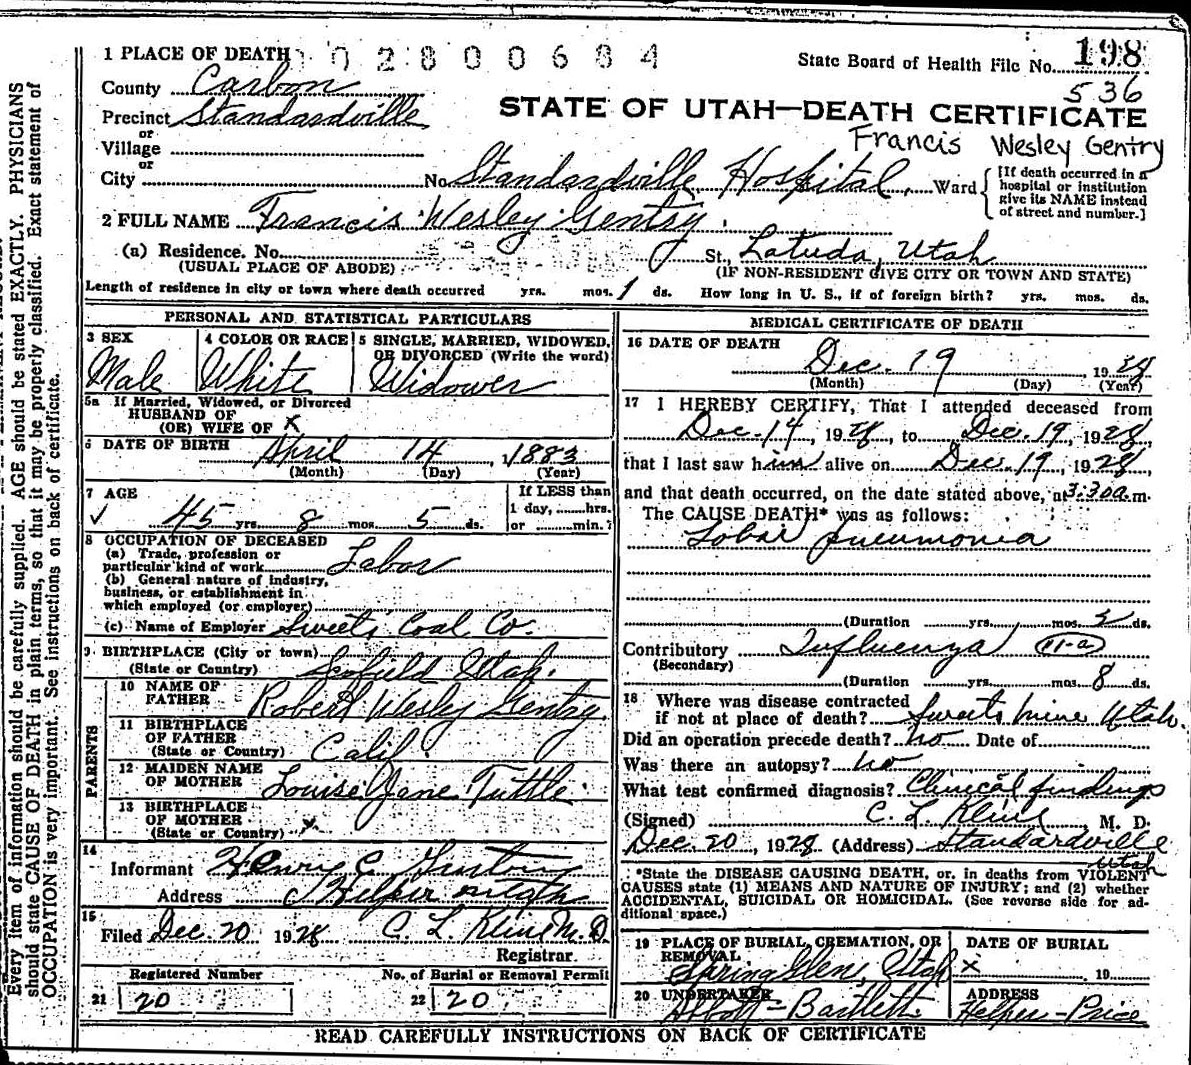 1 PLACE OF DEATH
02800684
State Board of Health File No. 198
536
County Carbon
Precinct Standardville
or
Village
or
City
STATE OF UTAH—DEATH CERTIFICATE
Francis Wesley Gentry
No. Standardville Hospital, Ward
[If death occurred in a
hospital or institution
give its NAME instead
of street and number.]
2 FULL NAME Francis Wesley Gentry.
(a) Residence. No. St., Latuda, Utah
(USUAL PLACE OF ABODE) (IF NON-RESIDENT GIVE CITY OR TOWN AND STATE)
Length of residence in city or town where death occurred yrs. mos. 1 ds. How long in U. S., if of foreign birth? yrs. mos. ds.
PERSONAL AND STATISTICAL PARTICULARS
3 SEX
Male
4 COLOR OR RACE
White
5 SINGLE, MARRIED, WIDOWED,
OR DIVORCED (Write the word)
Widower
5a If Married, Widowed, or Divorced
HUSBAND OF
(OR) WIFE OF X
6 DATE OF BIRTH April 14, 1883
(Month) (Day) (Year)
7 AGE
✓ 45 yrs. 8 mos. 5 ds.
If LESS than
1 day, ......hrs.
or ......min.?
8 OCCUPATION OF DECEASED
(a) Trade, profession or
particular kind of work Labor
(b) General nature of industry,
business, or establishment in
which employed (or employer)
(c) Name of Employer Sweets Coal Co.
9 BIRTHPLACE (City or town)
(State or Country) Scofield Utah.
PARENTS
10 NAME OF
FATHER Robert Wesley Gentry
11 BIRTHPLACE
OF FATHER
(State or Country) Calif.
12 MAIDEN NAME
OF MOTHER Louise Jane Tuttle
13 BIRTHPLACE
OF MOTHER
(State or Country) X
14
Informant Henry C.
Address Helper Utah
15
Filed Dec. 20 1928 C. L. Kline M. D.
Registrar.
Registered Number
21 20
No. of Burial or Removal Permit
22 20
MEDICAL CERTIFICATE OF DEATH
16 DATE OF DEATH
Dec. 19 1928
(Month) (Day) (Year)
17 I HEREBY CERTIFY, That I attended deceased from
Dec. 14, 1928, to Dec. 19, 1928,
that I last saw him alive on Dec. 19, 1928,
and that death occurred, on the date stated above, at 3:30a.m.
The CAUSE DEATH* was as follows:
Lobar pneumonia
(Duration yrs. mos. ds.
Contributory Influenza 11-a
(Secondary)
(Duration yrs. mos. 8 ds.
18 Where was disease contracted
if not at place of death? Sweets mine Utah.
Did an operation precede death? no Date of
Was there an autopsy? no
What test confirmed diagnosis? Clinical findings
(Signed) C. L. Kline, M. D.
Dec. 20, 1928 (Address) Standardville
Utah
*State the DISEASE CAUSING DEATH, or, in deaths from VIOLENT
CAUSES state (1) MEANS AND NATURE OF INJURY; and (2) whether
ACCIDENTAL, SUICIDAL OR HOMICIDAL. (See reverse side for ad-
ditional space.)
19 PLACE OF BURIAL, CREMATION, OR
REMOVAL
Spring Glen, Utah
DATE OF BURIAL
X 19
20 UNDERTAKER
Abbott-Bartlett
ADDRESS
Helper-Price
READ CAREFULLY INSTRUCTIONS ON BACK OF CERTIFICATE
Every item of information should be carefully supplied. AGE should be stated EXACTLY. PHYSICIANS
should state CAUSE OF DEATH in plain terms, so that it may be properly classified. Exact statement of
OCCUPATION is very important. See instructions on back of certificate.